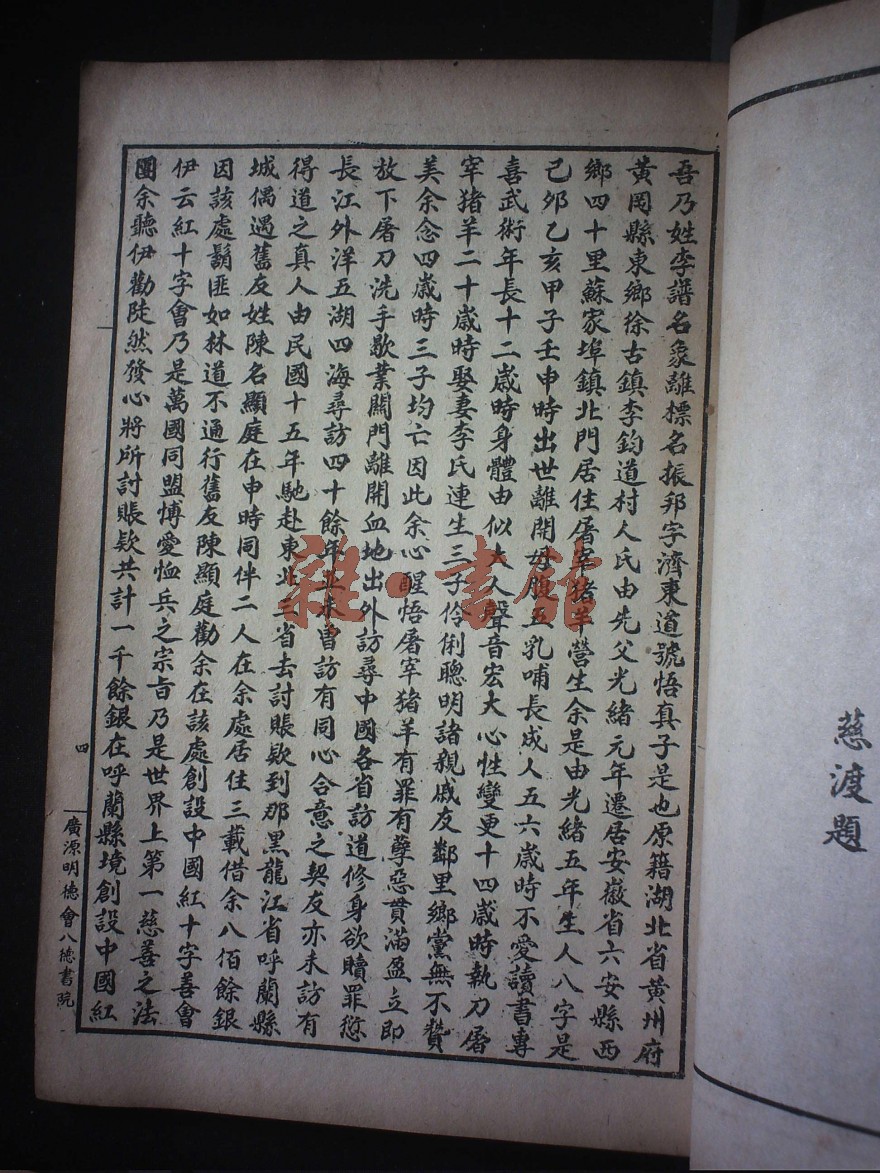 吾乃姓李譜名象離標名振邦字濟東道號悟真子是也原籍湖北省黃州府
黃岡縣東鄉徐古鎮李鈞道村人氏由先父光緒元年遷居安徽省六安縣西
鄉四十里蘇家埠鎮北門居住屠宰猪羊營生余是由光緒五年生人八字是
己卯乙亥甲子壬申時出世離開母腹五乳哺長成人五六歲時不愛讀書專
喜武術年長十二歲時身體由似大人聲音宏大心性變更十四歲時執刀屠
宰猪羊二十歲時娶妻李氏連生三子伶俐聰明諸親戚友鄰里鄉黨無不贊
美余念四歲時三子均亡因此余心醒悟屠宰猪羊有罪有孽惡貫滿盈立即
放下屠刀洗手歇業關門離開血地出外訪尋中國各省訪道修身欲贖罪愆
長江外洋五湖四海尋訪四十餘年並未曾訪有同心合意之契友亦未訪有
得道之真人由民國十五年馳赴東北三省去討賬欵到那黑龍江省呼蘭縣
城偶遇舊友姓陳名顯庭在申時同伴二人在余處居住三載借余八佰餘銀
因該處鬍匪如林道不通行舊友陳顯庭勸余在該處創設中國紅十字善會
伊云紅十字會乃是萬國同盟博愛恤兵之宗旨乃是世界上第一慈善之法
團余聽伊勸陡然發心將所討賬欵共計一千餘銀在呼蘭縣境創設中國紅
四
廣源明德會八德書院
慈渡題
雜·書館